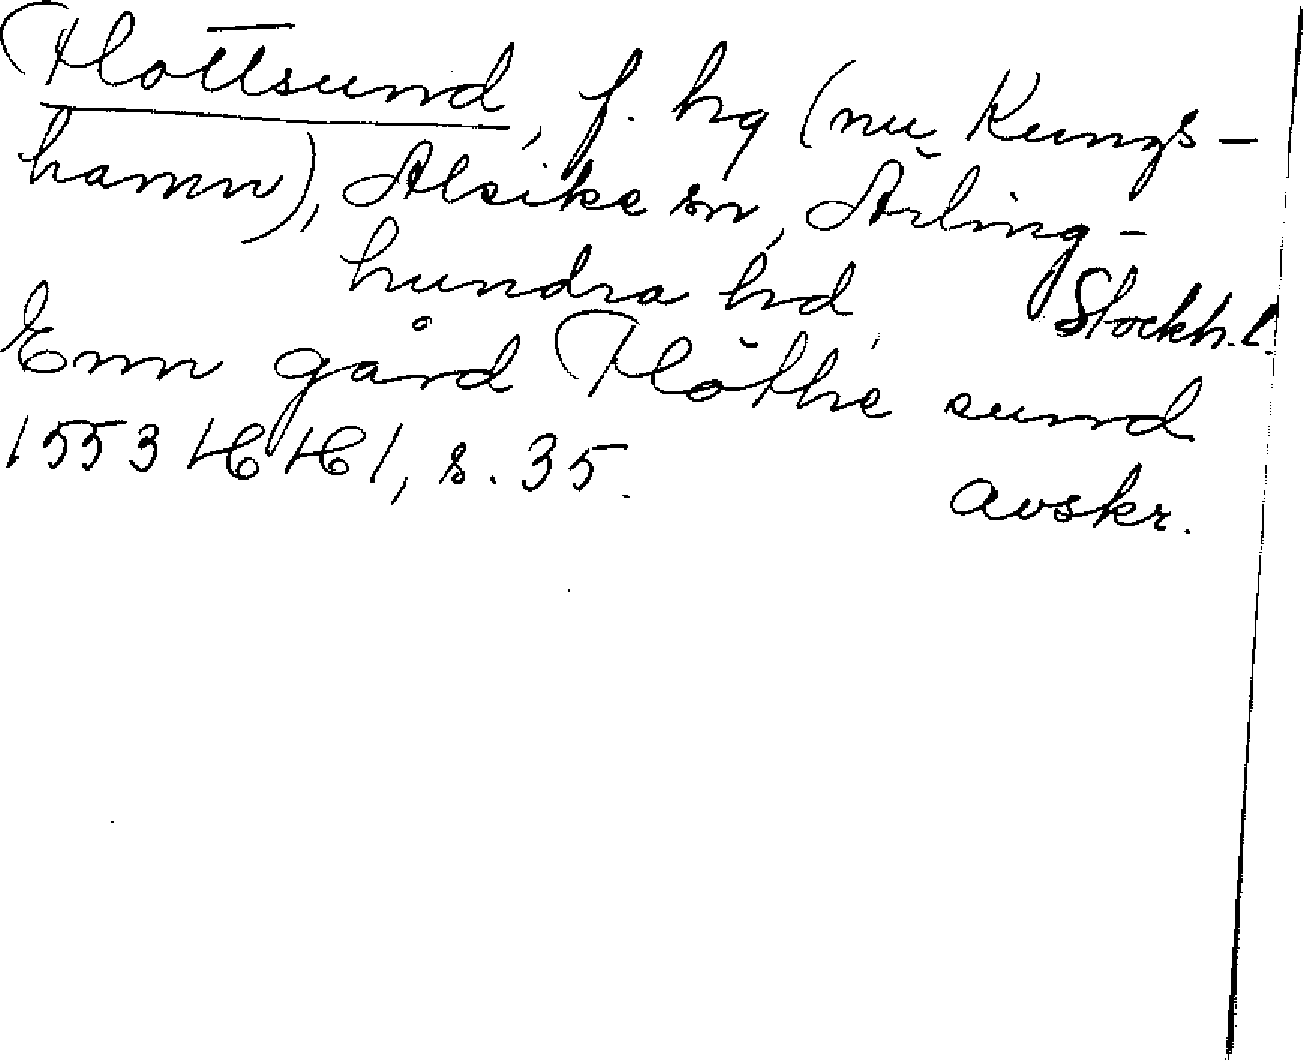 Flottsund, f. hg (nu Kungs-
hamn), Alsike sn, Ärling-
hundra hd, Stockh. l.
Enn gård Flöthe sund
1553 HH 1, s. 35. avskr.